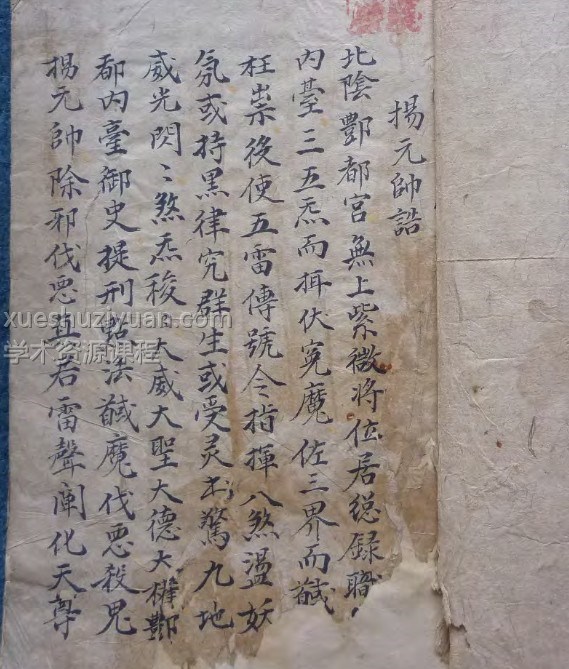 楊元帥誥
北陰酆都宮無上紫微将位居総錄職
内臺三五炁而揖伏寃魔佐三界而馘
枉祟後使五雷傳號令指揮八煞盪妖
氛或持黑律究群生或受灵书驚九地
威光閃〻煞炁稜〻大威大聖大德大權酆
都内臺御史提刑㸃法馘魔伐恶殺鬼
楊元帥除邪伐恶直若雷聲闡化天尊
xueshuziyuan.com
学术资源课程